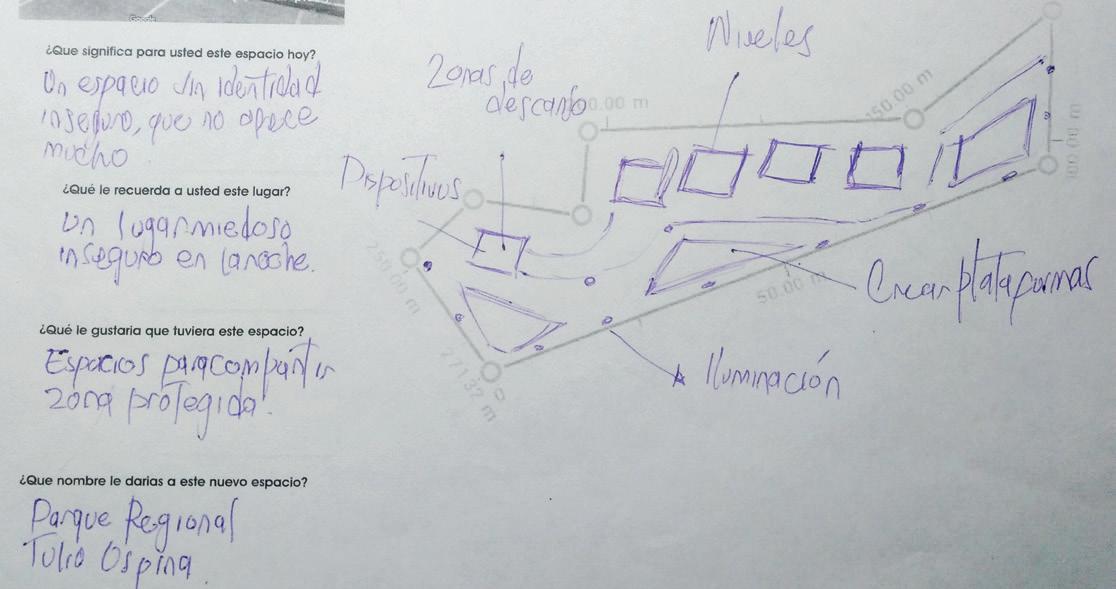 Google
¿Que significa para usted este espacio hoy?
Un espacio sin identidad
inseguro, que no ofrece
mucho.
¿Qué le recuerda a usted este lugar?
Un lugar miedoso
inseguro en la noche.
¿Qué le gustaria que tuviera este espacio?
Espacios para compartir
zona protegida.
¿Que nombre le darias a este nuevo espacio?
Parque Regional
Tulio Ospina.
Niveles
Zonas de
descanso
0.00 m
150.00 m
Dispositivos
250.00 m
50.00 m
Crear plataformas
271.32 m
Iluminación